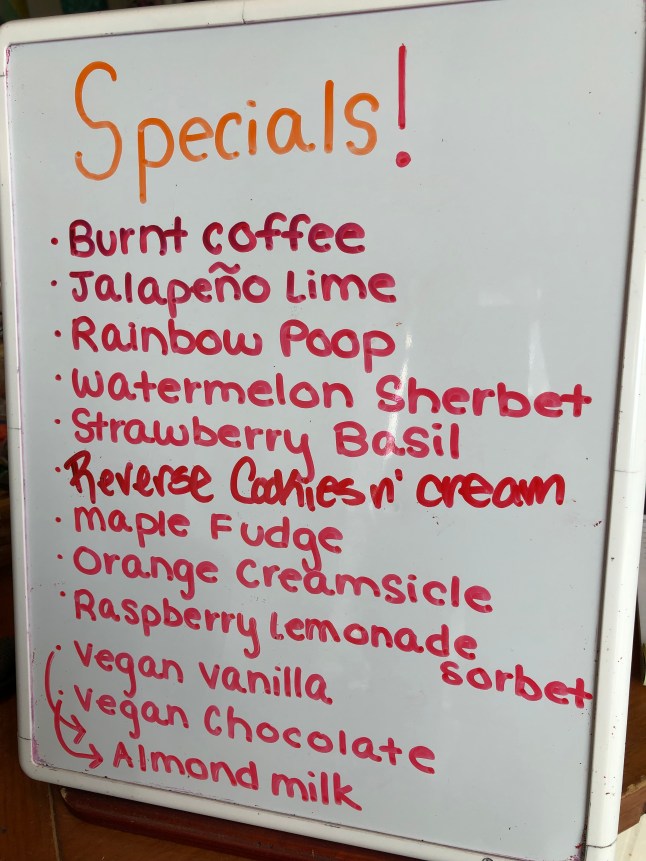 Specials!
· Burnt coffee
· Jalapeño Lime
· Rainbow Poop
· Watermelon Sherbet
· Strawberry Basil
· Reverse Cookies n' cream
· Maple Fudge
· Orange Creamsicle
· Raspberry Lemonade
sorbet
· Vegan Vanilla
· Vegan Chocolate
→ Almond milk